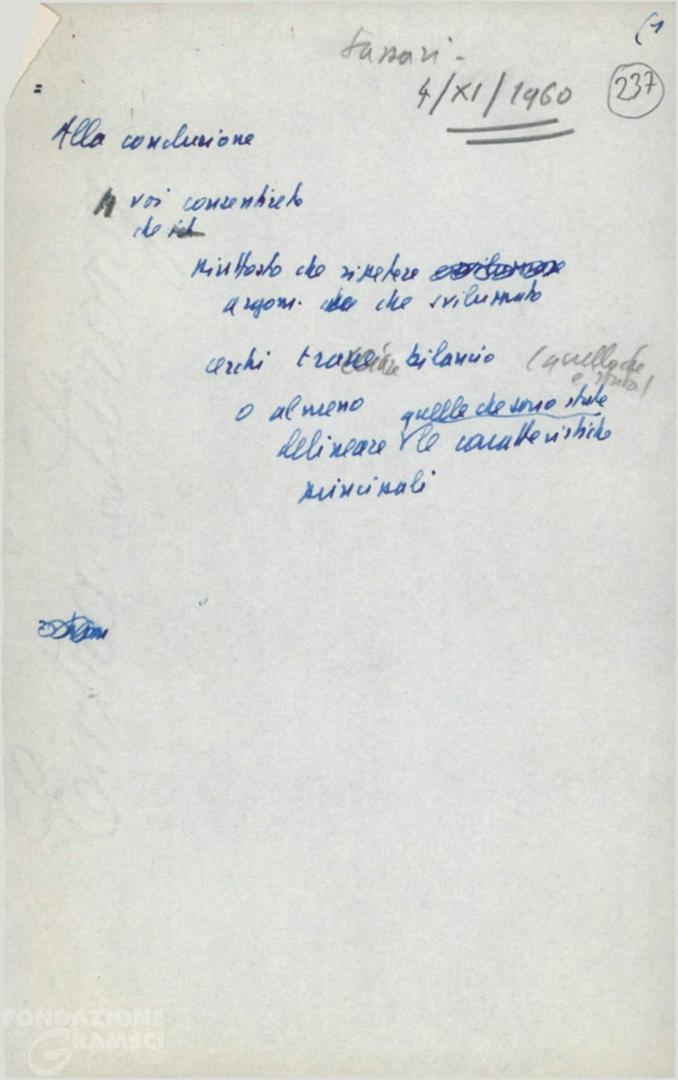 (1
Sassari -
4/XI/1960
237
=
Alla conclusione
voi consentirete
che
piuttosto che ripetere
argom. che sviluppato
cerchi bilancio (quello che
è stata)
o almeno quelle che sono state
delineare le caratteristiche
principali
FONDAZIONE
GRAMSCI